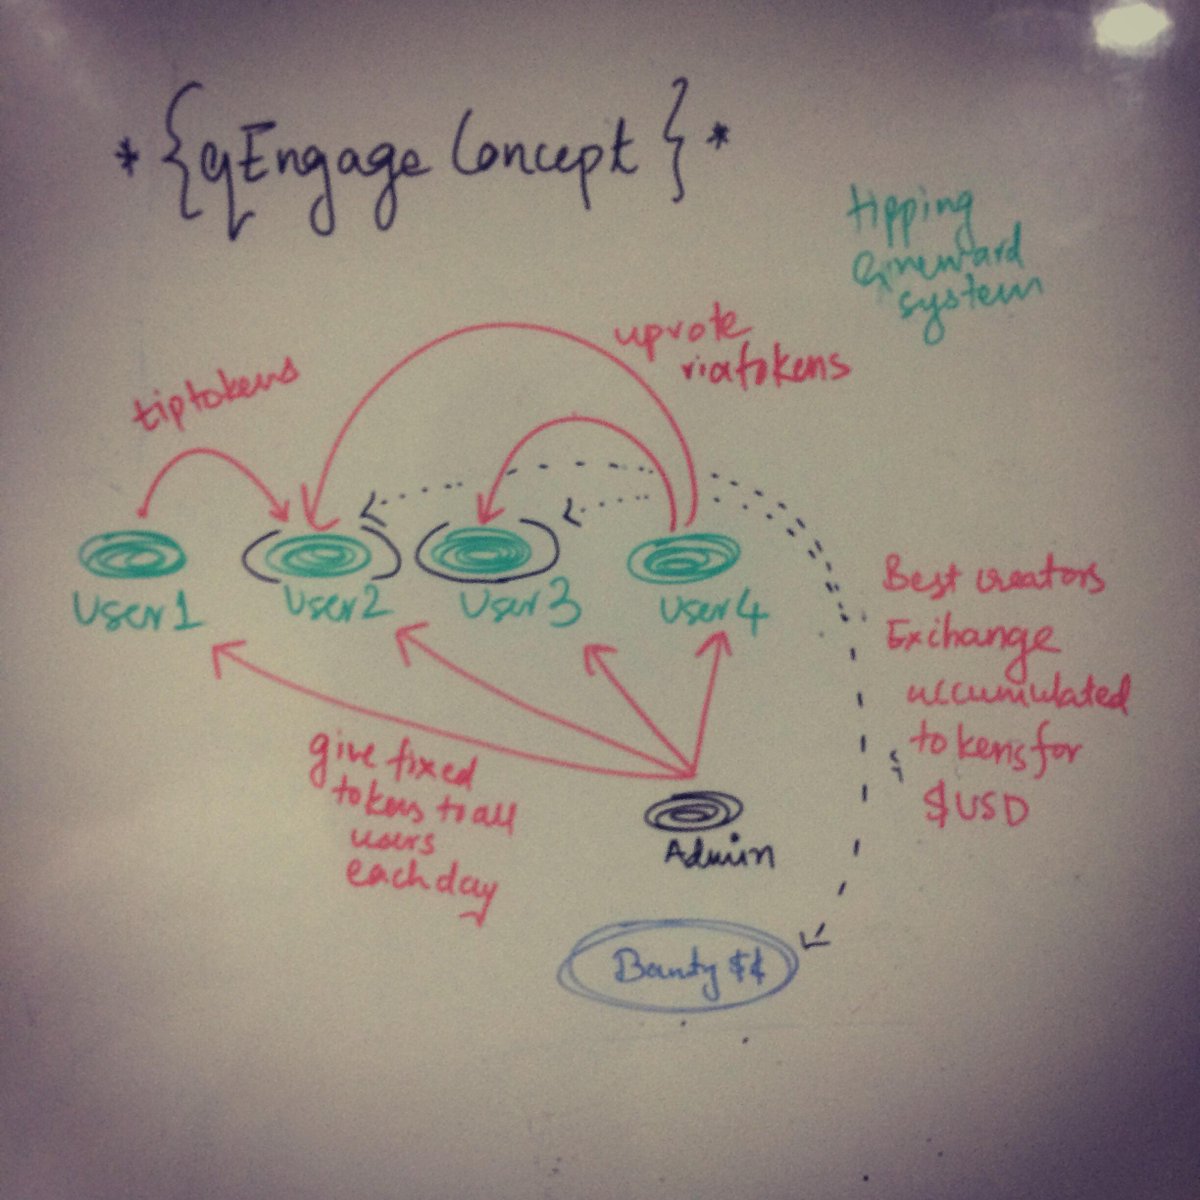 * {qEngage Concept} *
tipping
& reward
system
upvote
via tokens
tip tokens
User 1
User 2
User 3
User 4
Best creators
Exchange
accumulated
tokens for
$USD
give fixed
tokens to all
users
each day
Admin
Bounty $$